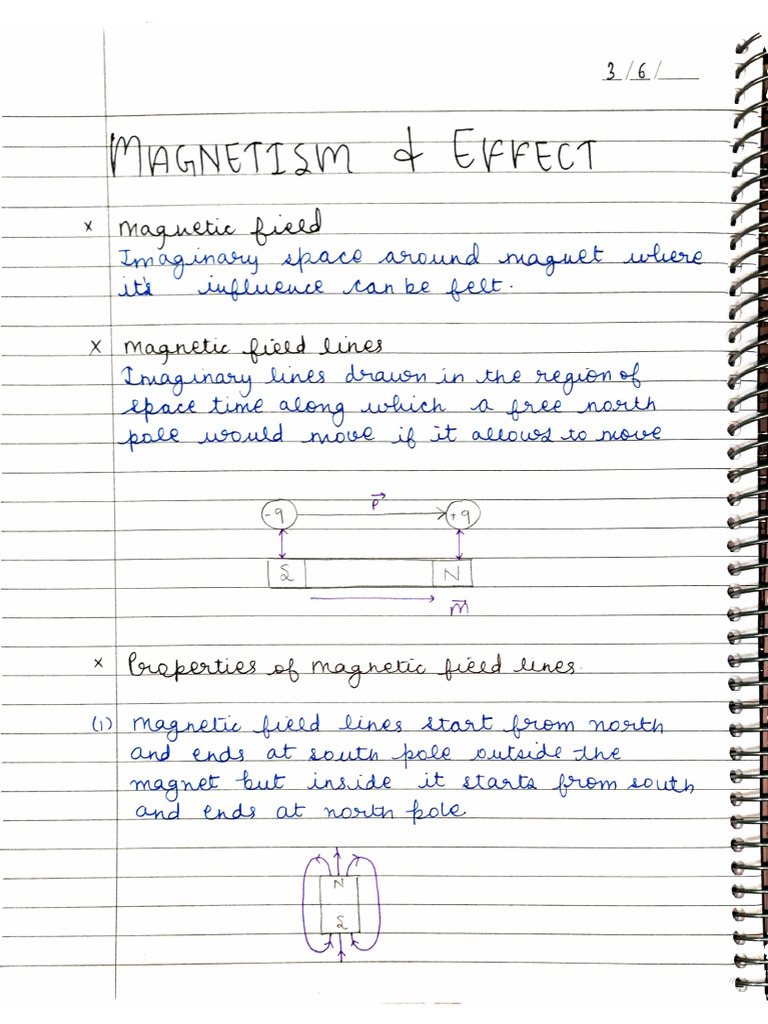 3/6/
MAGNETISM & EFFECT
x magnetic field
Imaginary space around magnet where
it's influence can be felt.
x magnetic field lines
Imaginary lines drawn in the region of
space time along which a free north
pole would move if it allows to move
-q P +q
S N
M
x Properties of magnetic field lines.
(1) magnetic field lines start from north
and ends at south pole outside the
magnet but inside it starts from south
and ends at north pole
N
S